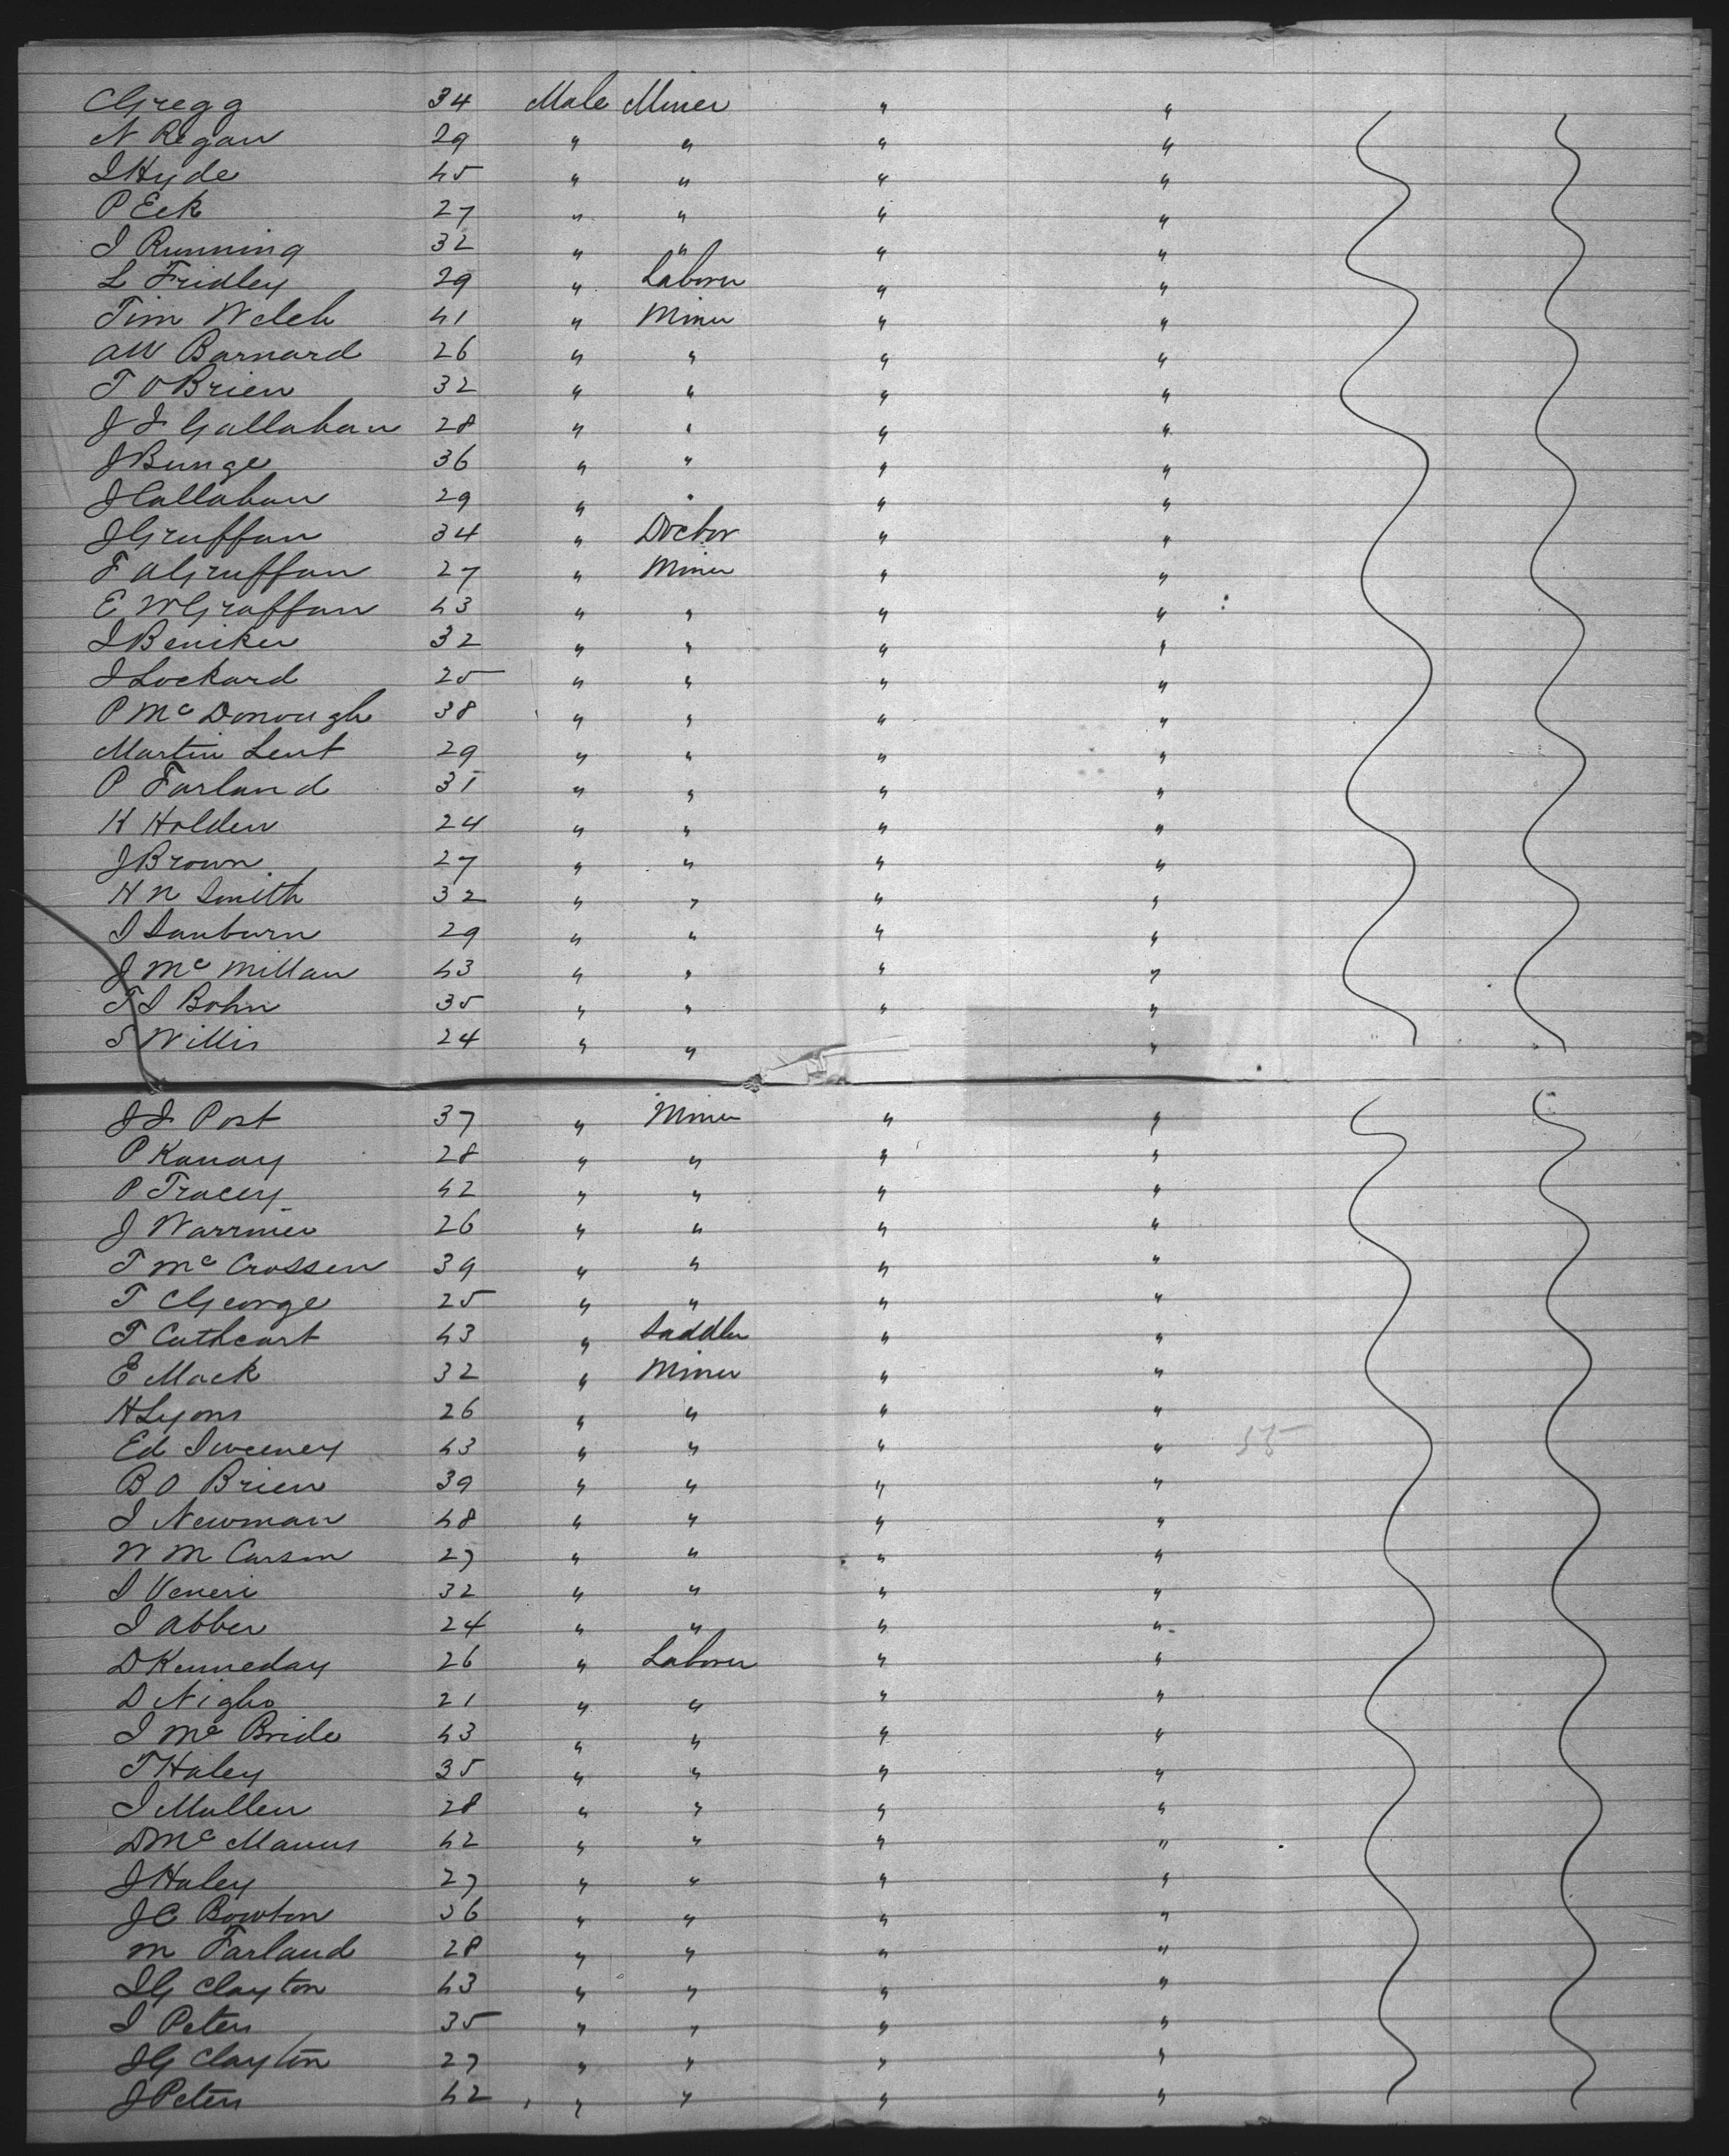 Gregg 34 Male Miner " "
N Regan 29 " " " "
I Hyde 45 " " " "
P Eck 27 " " " "
I Running 32 " " " "
L Fridley 29 " Laborer " "
Tim Welch 41 " Miner " "
AW Barnard 26 " " " "
T OBrien 32 " " " "
J I Gallahan 28 " " " "
J Bunge 36 " " " "
J Callahan 29 " " " "
J Gruffan 34 " Doctor " "
F A Gruffan 27 " Miner " "
E W Graffan 43 " " " "
I Beniker 32 " " " "
I Lockard 25 " " " "
P McDonough 38 " " " "
Martin Lent 29 " " " "
P Farland 31 " " " "
H Holden 24 " " " "
J Brown 27 " " " "
H N Smith 32 " " " "
I Sanburn 29 " " " "
J McMillan 43 " " " "
T I Bohn 35 " " " "
S Willis 24 " " " "
J I Post 37 " Miner " "
P Kanay 28 " " " "
P Tracey 42 " " " "
J Warrnier 26 " " " "
T McCrossen 39 " " " "
T George 25 " " " "
T Cathcart 43 " Saddler " "
E Mack 32 " Miner " "
H Lyons 26 " " " "
Ed Sweeney 43 " " " "
B O Brien 39 " " " "
I Newman 48 " " " "
W M Carson 27 " " " "
I Veneri 32 " " " "
I Abber 24 " " " "
D Kenneday 26 " Laborer " "
D Nigho 21 " " " "
I McBride 43 " " " "
T Haley 35 " " " "
I Mullen 28 " " " "
D McManus 42 " " " "
J Haley 27 " " " "
J C Bowton 36 " " " "
M Farland 28 " " " "
I G Clayton 43 " " " "
I Peters 35 " " " "
J G Clayton 27 " " " "
J Peters 42 " " " "